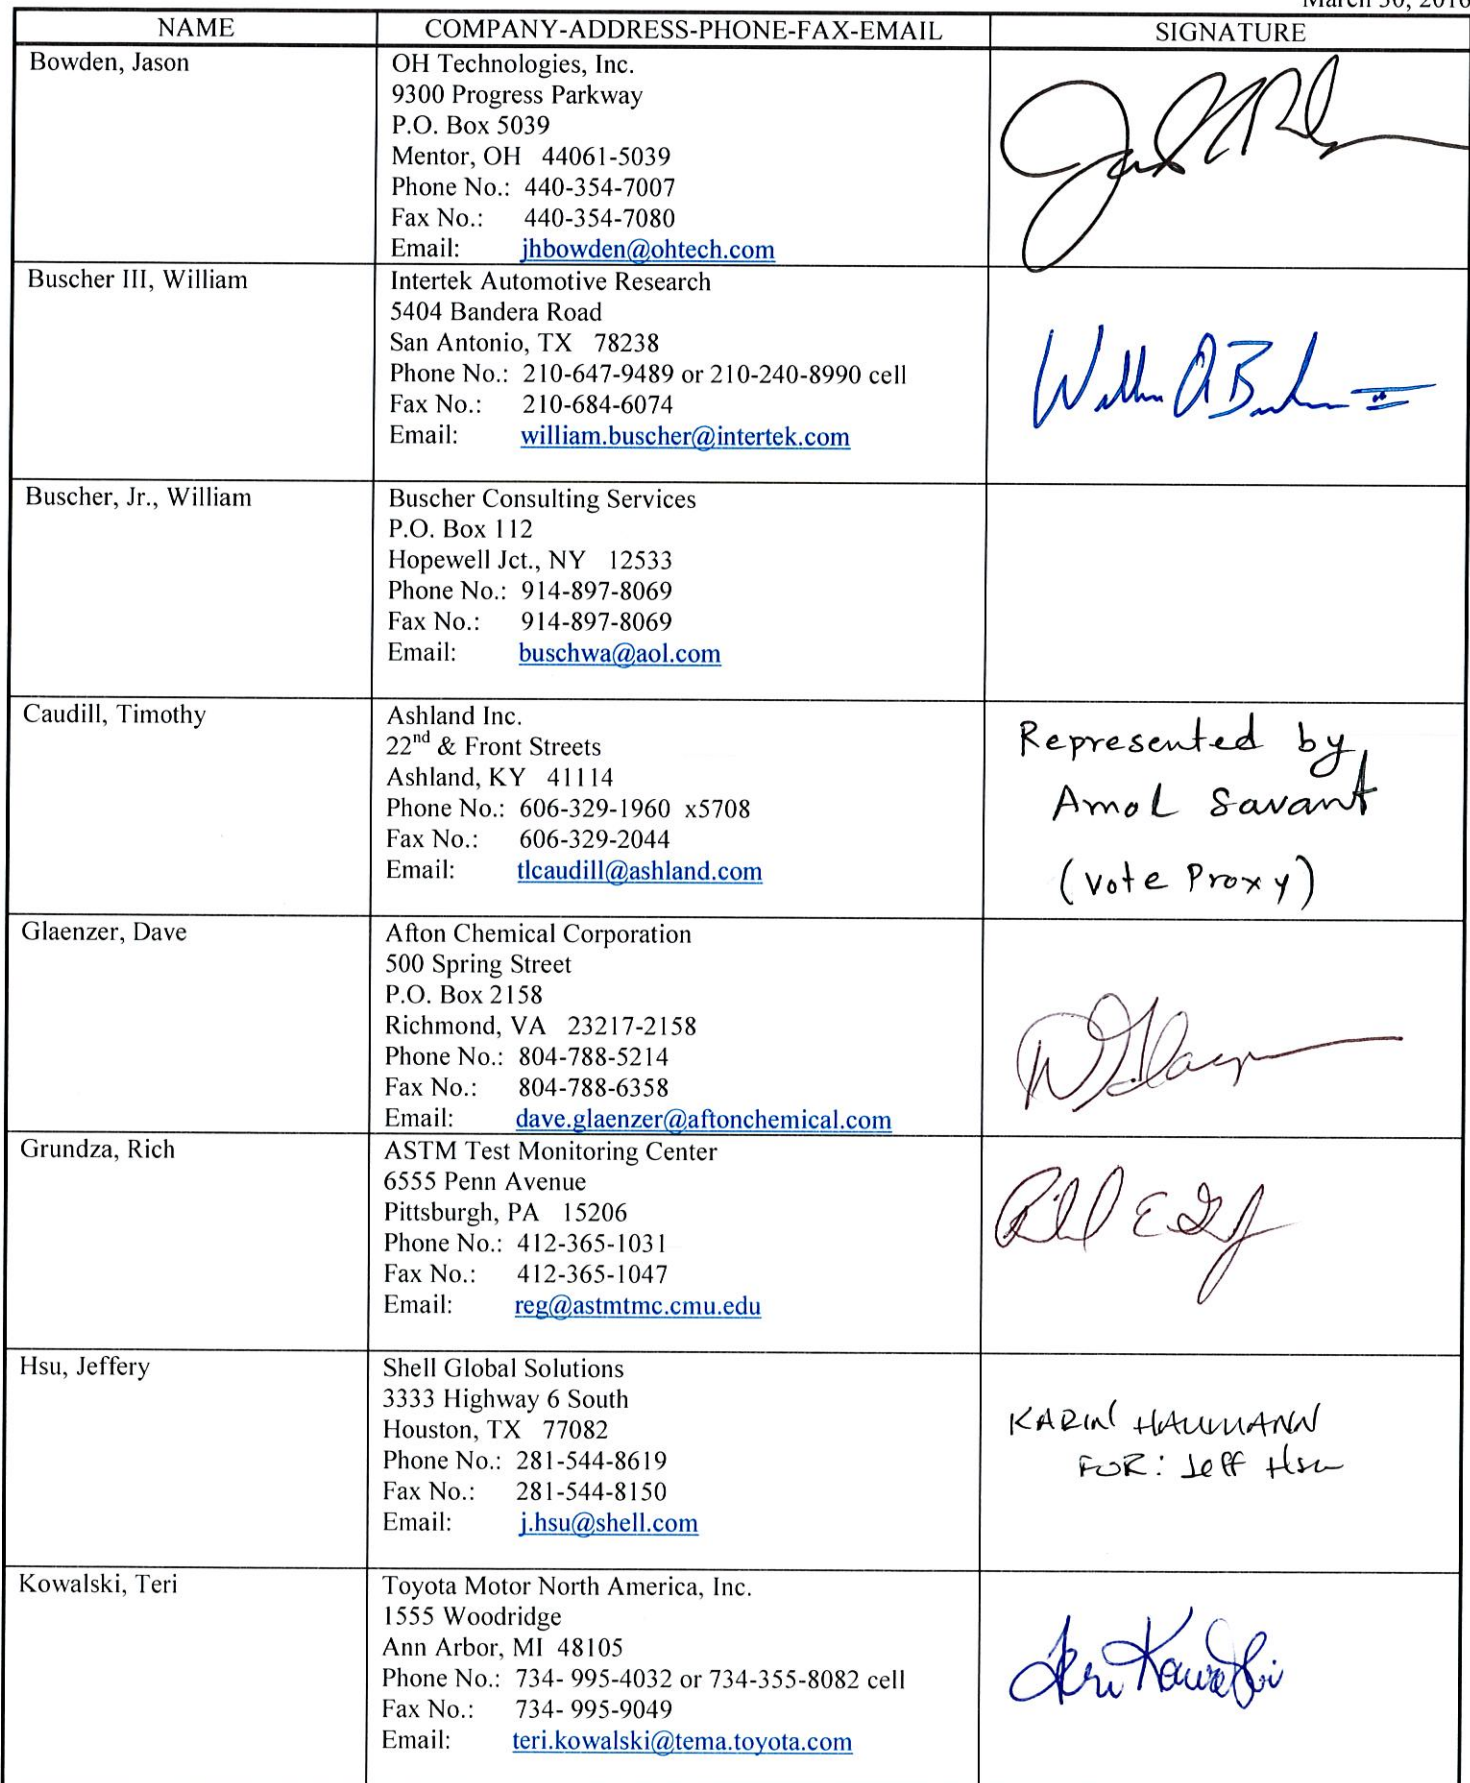 March 30, 2016
NAME COMPANY-ADDRESS-PHONE-FAX-EMAIL SIGNATURE
Bowden, Jason
OH Technologies, Inc.
9300 Progress Parkway
P.O. Box 5039
Mentor, OH 44061-5039
Phone No.: 440-354-7007
Fax No.: 440-354-7080
Email: jhbowden@ohtech.com
Buscher III, William
Intertek Automotive Research
5404 Bandera Road
San Antonio, TX 78238
Phone No.: 210-647-9489 or 210-240-8990 cell
Fax No.: 210-684-6074
Email: william.buscher@intertek.com
Buscher, Jr., William
Buscher Consulting Services
P.O. Box 112
Hopewell Jct., NY 12533
Phone No.: 914-897-8069
Fax No.: 914-897-8069
Email: buschwa@aol.com
Caudill, Timothy
Ashland Inc.
22nd & Front Streets
Ashland, KY 41114
Phone No.: 606-329-1960 x5708
Fax No.: 606-329-2044
Email: tlcaudill@ashland.com
Represented by
Amol Savant
(Vote Proxy)
Glaenzer, Dave
Afton Chemical Corporation
500 Spring Street
P.O. Box 2158
Richmond, VA 23217-2158
Phone No.: 804-788-5214
Fax No.: 804-788-6358
Email: dave.glaenzer@aftonchemical.com
Grundza, Rich
ASTM Test Monitoring Center
6555 Penn Avenue
Pittsburgh, PA 15206
Phone No.: 412-365-1031
Fax No.: 412-365-1047
Email: reg@astmtmc.cmu.edu
Hsu, Jeffery
Shell Global Solutions
3333 Highway 6 South
Houston, TX 77082
Phone No.: 281-544-8619
Fax No.: 281-544-8150
Email: j.hsu@shell.com
KARIN HAUMANN
FOR: Jeff Hsu
Kowalski, Teri
Toyota Motor North America, Inc.
1555 Woodridge
Ann Arbor, MI 48105
Phone No.: 734- 995-4032 or 734-355-8082 cell
Fax No.: 734- 995-9049
Email: teri.kowalski@tema.toyota.com
Teri Kowalski